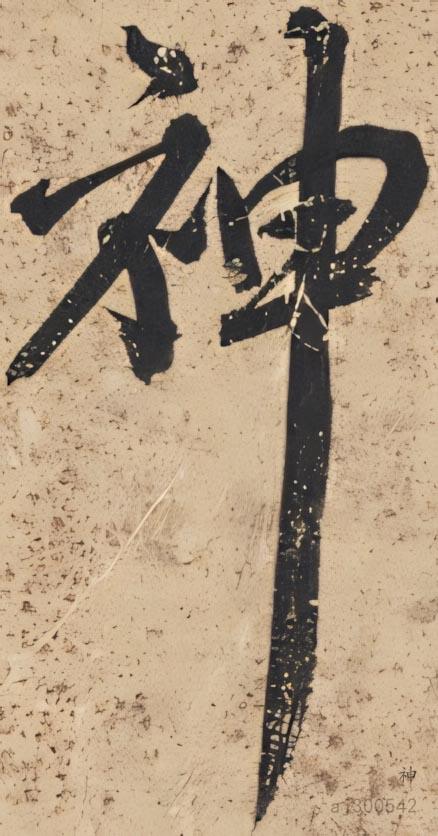 神
神
a1300542